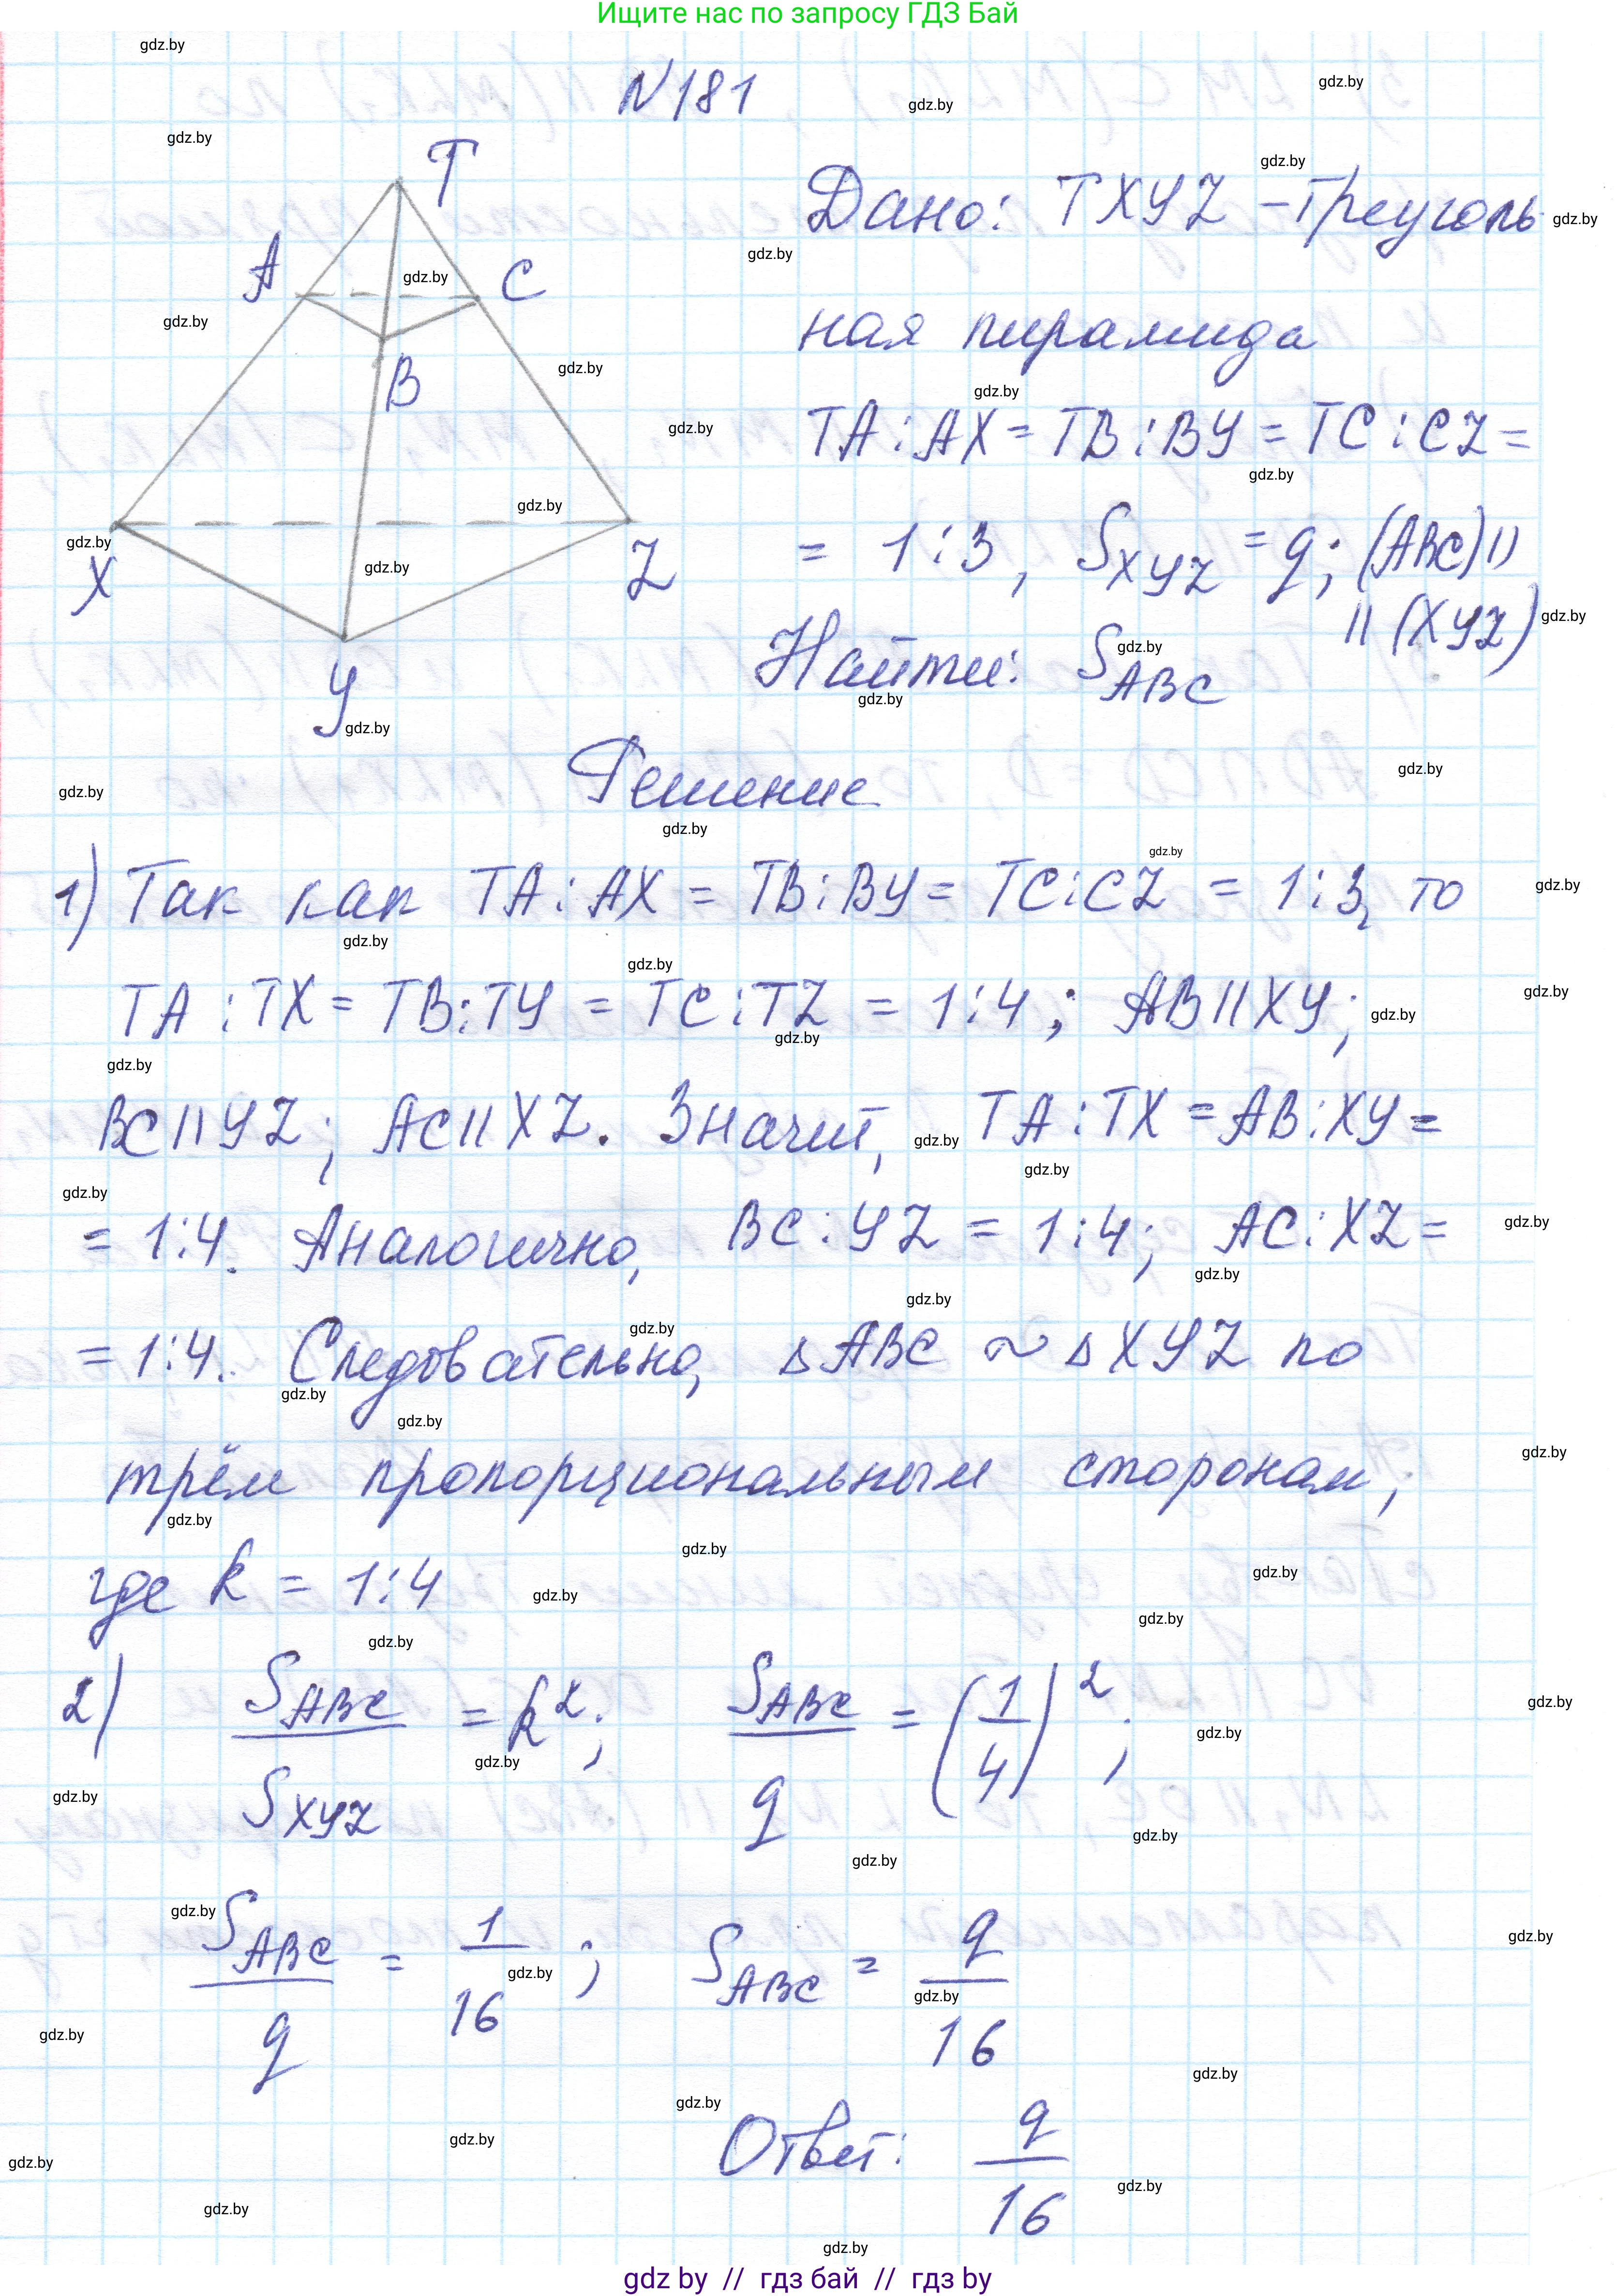 Ищите нас по запросу ГДЗ Бай
N181
T
A
C
B
X
Z
Y
Дано: TXYZ – треуголь
ная пирамида
TA : AX = TB : BY = TC : CZ =
= 1 : 3, S_XYZ = q; (ABC) ||
|| (XYZ)
Найти: S_ABC
Решение
1) Так как TA : AX = TB : BY = TC : CZ = 1 : 3, то
TA : TX = TB : TY = TC : TZ = 1 : 4; AB || XY;
BC || YZ; AC || XZ. Значит, TA : TX = AB : XY =
= 1 : 4. Аналогично, BC : YZ = 1 : 4; AC : XZ =
= 1 : 4. Следовательно, ΔABC ~ ΔXYZ по
трём пропорциональным сторонам,
где k = 1 : 4
2) S_ABC / S_XYZ = k²; S_ABC / q = (1/4)²;
S_ABC / q = 1/16; S_ABC = q/16
Ответ: q/16
gdz by // гдз бай // гдз by